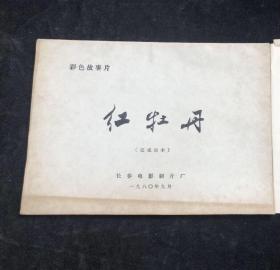 彩色故事片
红牡丹
（完成台本）
长春电影制片厂
一九八〇年九月